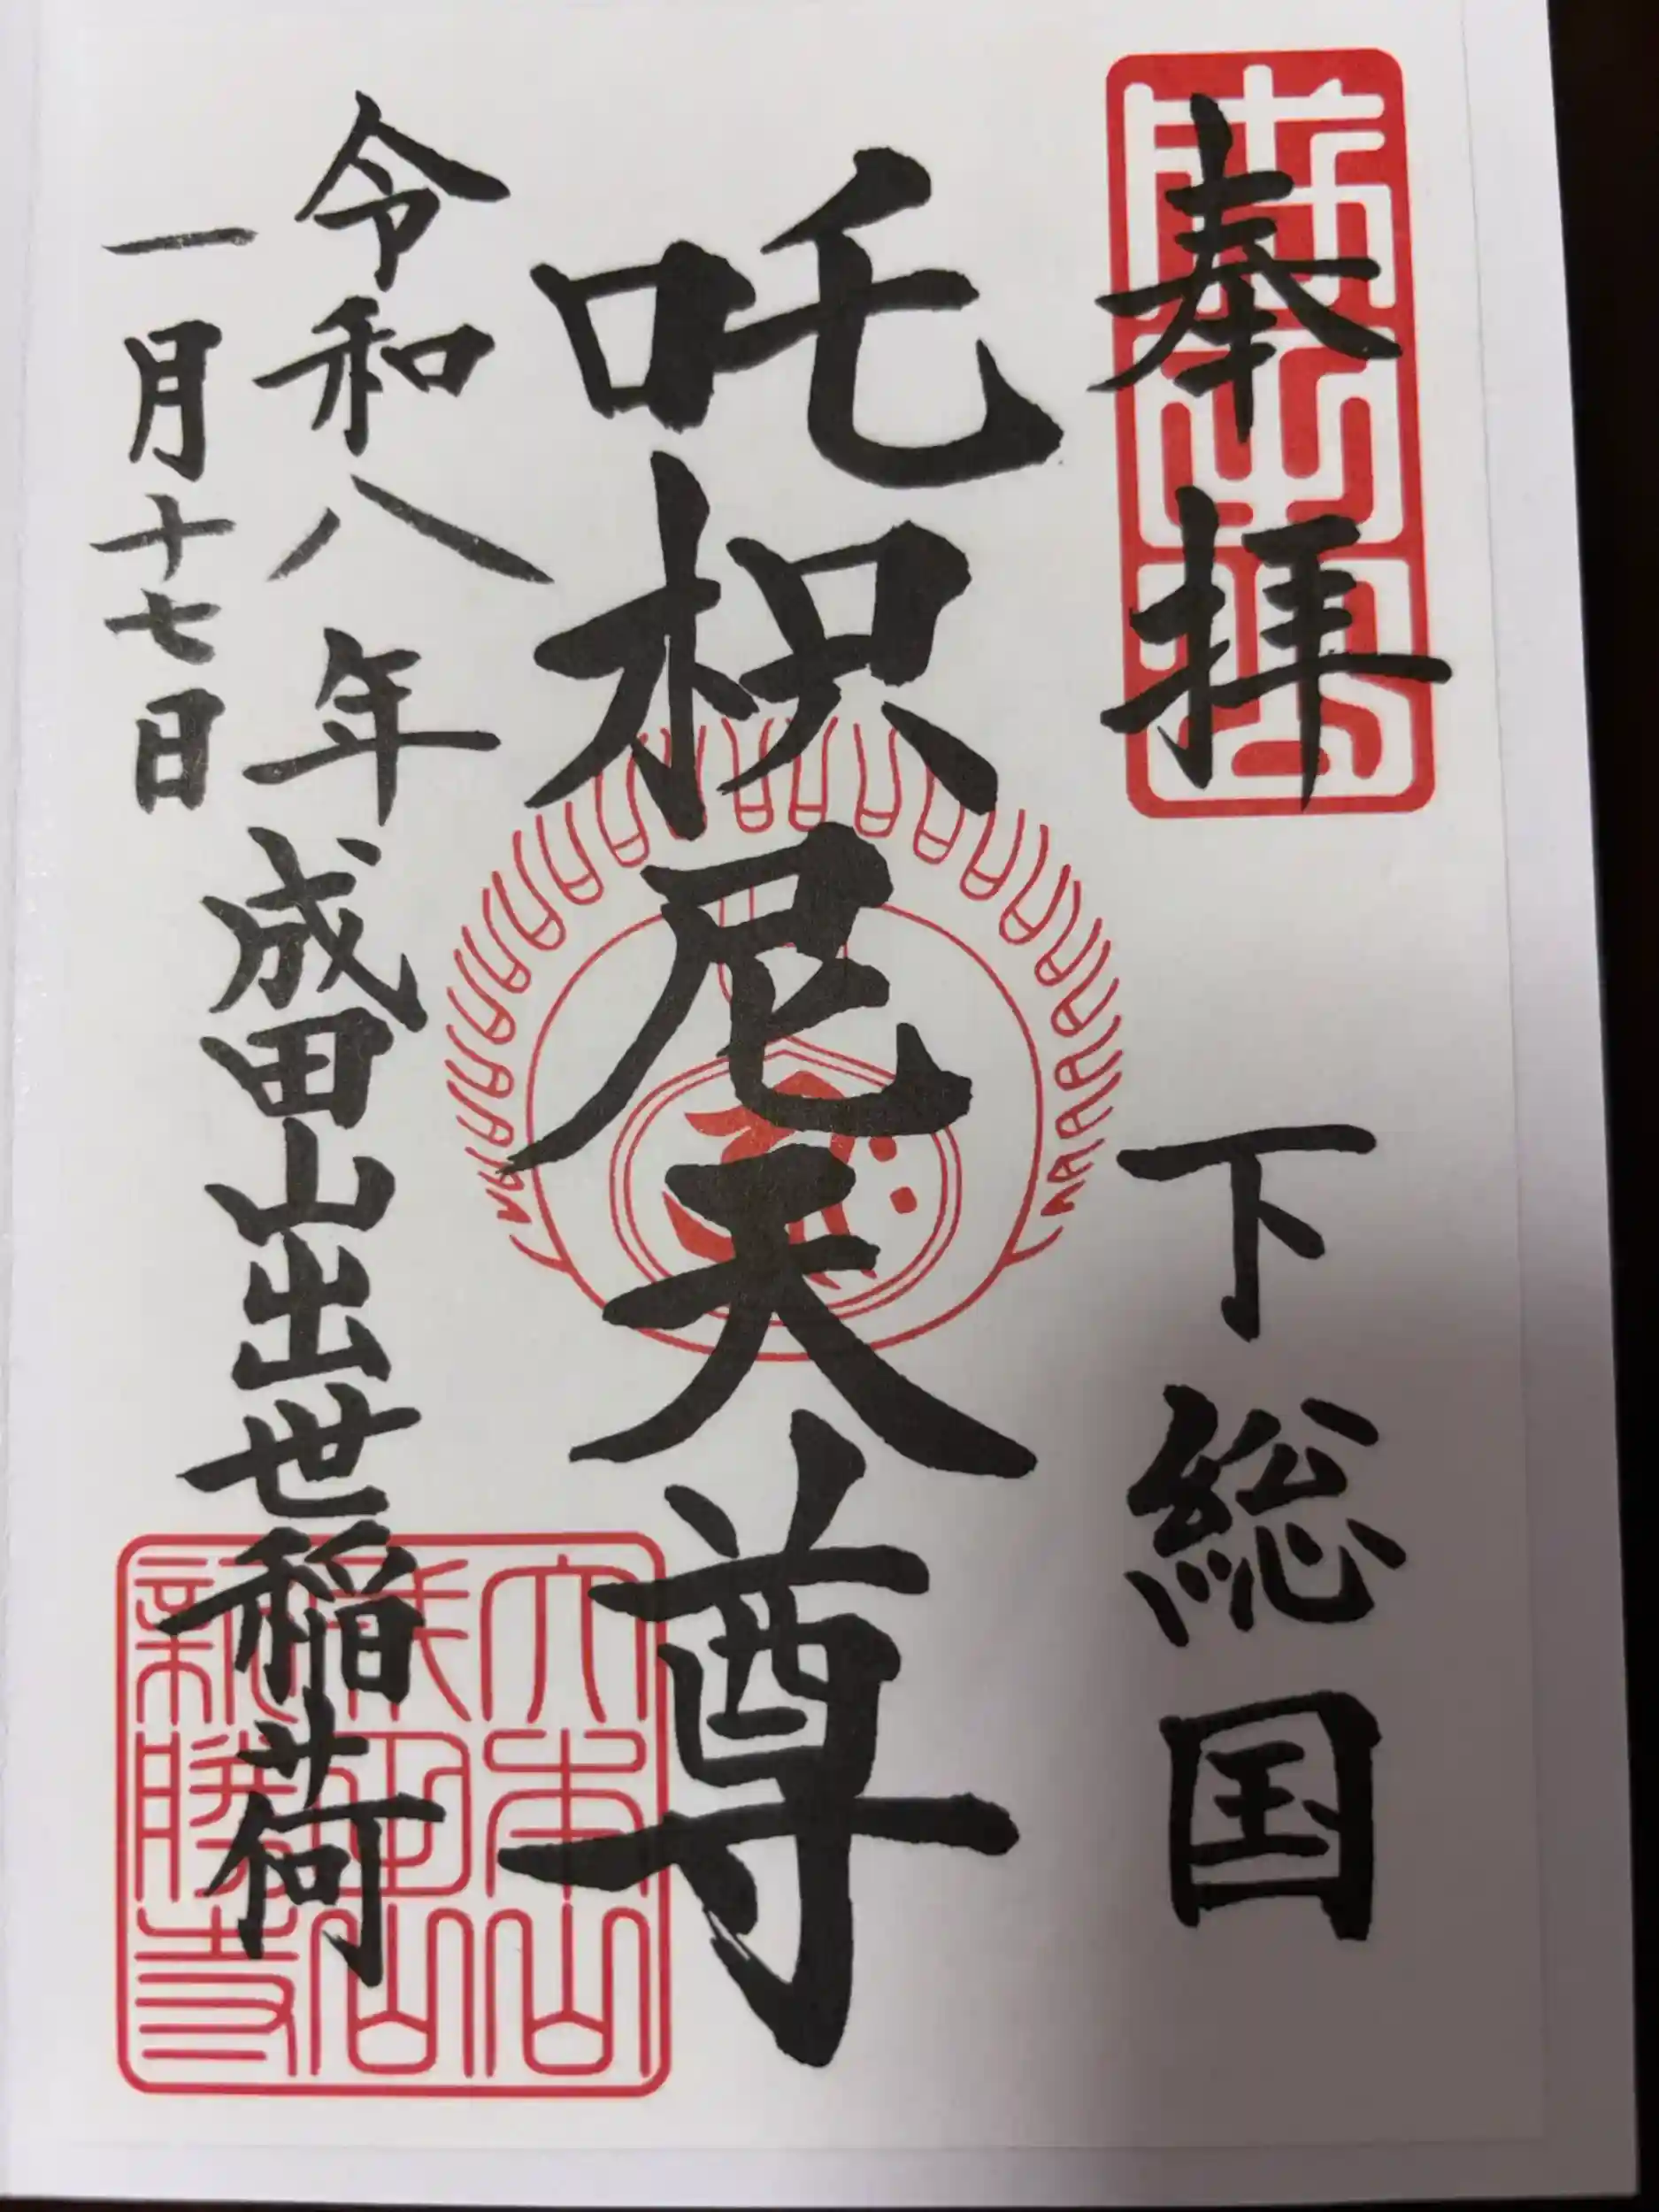 奉拝
下総国
吒枳尼天尊
令和八年
一月十七日
成田山出世稲荷
大本山
成田山
新勝寺